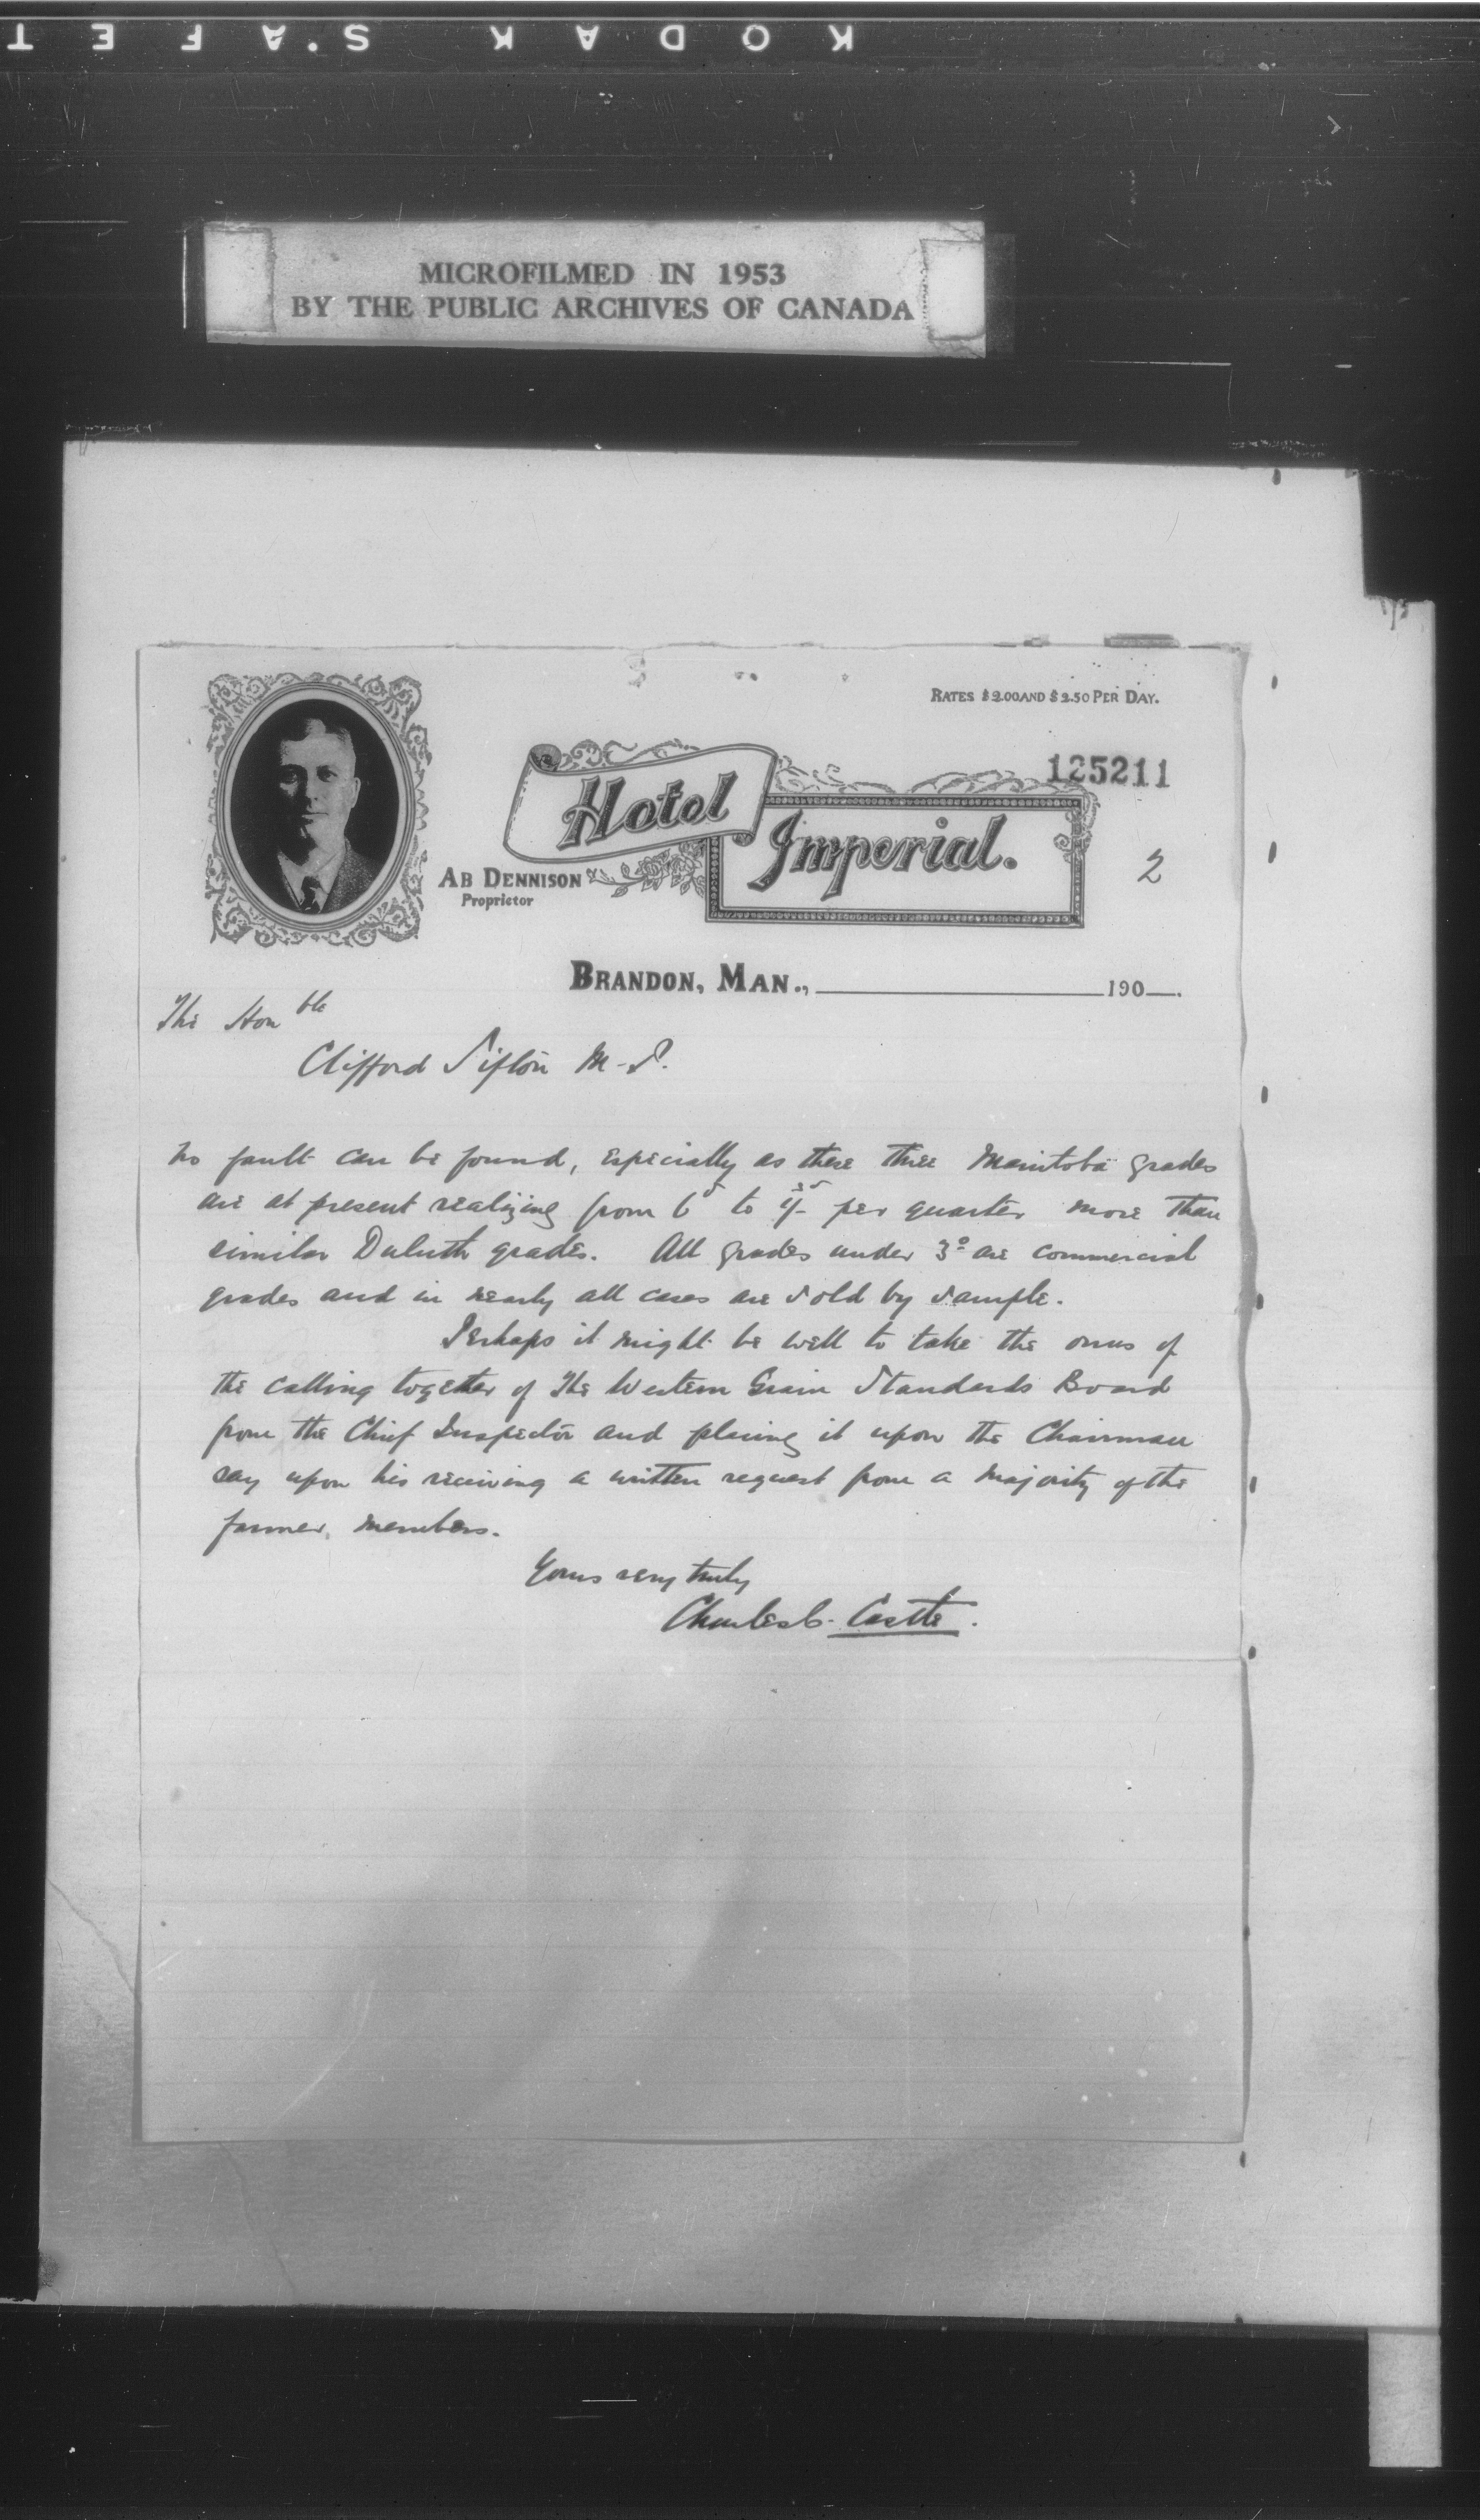 KODAK SAFETY
MICROFILMED IN 1953
BY THE PUBLIC ARCHIVES OF CANADA
RATES $2.00 AND $2.50 PER DAY.
125211
Hotel Imperial.
2
AB DENNISON
Proprietor
BRANDON, MAN., 190
The Honble
Clifford Sifton M-P.
no fault can be found, especially as these three Manitoba grades
are at present realizing from 6 to per quarter more than
similar Duluth grades. All grades under 3º are commercial
grades and in nearly all cases are sold by sample.
Perhaps it might be well to take the onus of
the calling together of the Western Grain Standards Board
from the Chief Inspector and placing it upon the Chairman
say upon his receiving a written request from a majority of the
farmer members.
Yours very truly
Charles C. Castle.